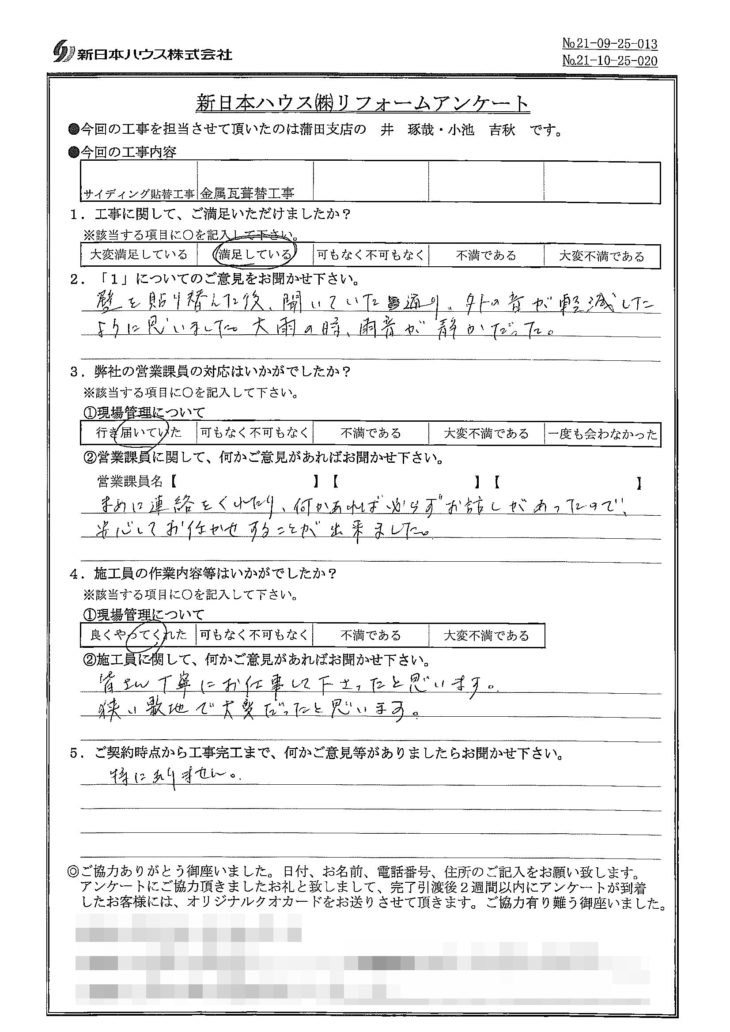 新日本ハウス株式会社
No.21-09-25-013
No.21-10-25-020
新日本ハウス㈱リフォームアンケート
●今回の工事を担当させて頂いたのは蒲田支店の 井 琢哉・小池 吉秋 です。
●今回の工事内容
サイディング貼替工事 金属瓦葺替工事
1．工事に関して、ご満足いただけましたか？
※該当する項目に○を記入して下さい。
大変満足している 満足している 可もなく不可もなく 不満である 大変不満である
2．「1」についてのご意見をお聞かせ下さい。
壁を貼り替えた後、聞いていた通り、外の音が軽減した
ように思いました。大雨の時、雨音が静かだった。
3．弊社の営業課員の対応はいかがでしたか？
※該当する項目に○を記入して下さい。
①現場管理について
行き届いていた 可もなく不可もなく 不満である 大変不満である 一度も会わなかった
②営業課員に関して、何かご意見があればお聞かせ下さい。
営業課員名【 】【 】【 】
まめに連絡をくれたり、何かあれば必らずお話しがあったので、
安心してお任かせすることが出来ました。
4．施工員の作業内容等はいかがでしたか？
※該当する項目に○を記入して下さい。
①現場管理について
良くやってくれた 可もなく不可もなく 不満である 大変不満である
②施工員に関して、何かご意見があればお聞かせ下さい。
皆さん丁寧にお仕事して下さったと思います。
狭い敷地で大変だったと思います。
5．ご契約時点から工事完工まで、何かご意見等がありましたらお聞かせ下さい。
特にありません。
◎ご協力ありがとう御座いました。日付、お名前、電話番号、住所のご記入をお願い致します。
アンケートにご協力頂きましたお礼と致しまして、完了引渡後２週間以内にアンケートが到着
したお客様には、オリジナルクオカードをお送りさせて頂きます。ご協力有り難う御座いました。